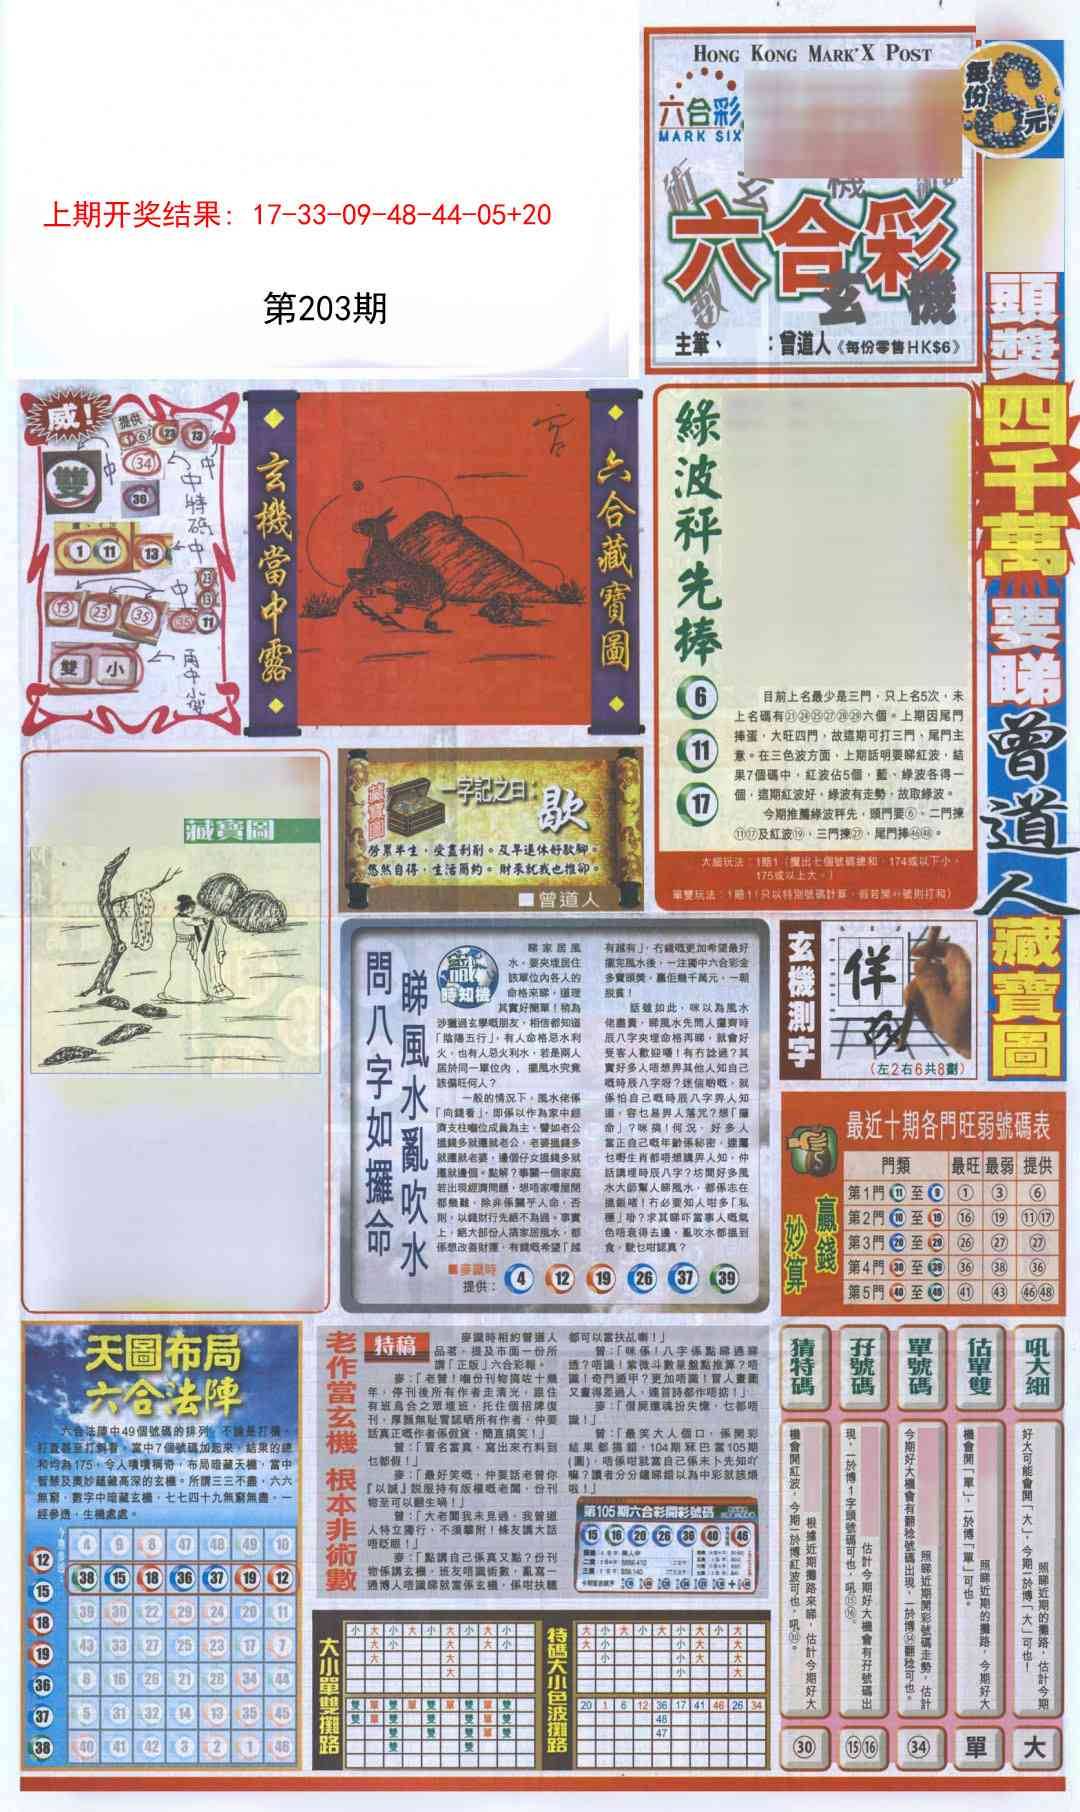 HONG KONG MARK'X POST
六合彩
MARK SIX
每份6元
術 玄 機
六合彩
玄機
數
主筆、 :曾道人《每份零售HK$6》
上期开奖结果: 17-33-09-48-44-05+20
第203期
頭獎四千萬要睇曾道人藏寶圖
威!
提供
雙
34
36
中特碼
1 11 13
13 23 35
雙 小
玄機當中露
六合藏寶圖
綠波秤先捧
6
11
17
目前上名最少是三門,只上名5次,未
上名碼有㉑㉔㉕㉗㉘㉙六個。上期因尾門
捧蛋,大旺四門,故這期可打三門、尾門主
意。在三色波方面,上期話明要睇紅波,結
果7個碼中,紅波佔5個,藍、綠波各得一
個,這期紅波好,綠波有走勢,故取綠波。
今期推薦綠波秤先,頭門要⑥、二門揀
⑪⑰及紅波⑲,三門揀㉗,尾門捧㊻㊽。
大細玩法:1賠1(攪出七個號碼總和,174或以下小,
175或以上大。)
單雙玩法:1賠1(只以特別號碼計算,假若開49號則打和)
藏寶圖
藏寶圖
一字記之曰:
歇
勞累半生,受盡剝削。及早退休好歇腳。
悠然自得,生活簡約。財來就我也推卻。
■曾道人
問八字如攞命
睇風水亂吹水
時知機
睇家居風
水,要夾埋居住
該單位內各人的
命格來睇,道理
其實好簡單!稍為
涉獵過玄學嘅朋友,相信都知道
「陰陽五行」,有人命格忌水利
火,也有人忌火利水,若是兩人
居於同一單位內,擺風水究竟
該偏旺何人?
一般的情況下,風水佬係
「向錢看」,即係以作為家中經
濟支柱嗰位成員為主,譬如老公
搵錢多就遷就老公,老婆搵錢多
就遷就老婆,邊個仔女搵錢多就
遷就邊個。點解?事關一個家庭
若出現經濟問題,想唔家嘈屋閉
都幾難,除非係關乎人命,否
則,以錢財行先絕不為過。事實
上,絕大部份人搞家居風水,都
係想改善財運,有錢嘅希望「越
有越有」,冇錢嘅更加希望最好
擺完風水後,一注獨中六合彩金
多寶頭獎,贏佢幾千萬元,一朝
脫貧!
話雖如此,咪以為風水
佬盡責,睇風水先問人攞齊時
辰八字夾埋命格再睇,就會好
受客人歡迎噃!有冇諗過?其
實好多人唔想畀其他人知自己
嘅時辰八字呀?迷信啲嘅,就
係怕自己嘅時辰八字畀人知
道,容乜易畀人落咒?想「攞
命」?咪搞!何況,好多人
當正自己嘅年齡係秘密,連屬
乜嘢生肖都唔想講畀人知,仲
話講埋時辰八字?坊間好多風
水大師幫人睇風水,都係志在
搵銀啫!冇必要知人咁多「私
穩」唔?求其睇吓當事人嘅氣
色唔衰得去邊,亂吹水都搵到
食,駛乜咁認真?
■麥識時
提供: 4 12 19 26 37 39
玄機測字
佯
(左2右6共8劃)
最近十期各門旺弱號碼表
贏錢
妙算
門類 最旺 最弱 提供
第1門 至 9 ① ③ ⑥
第2門 10 至 19 ⑯ ⑲ ⑪⑰
第3門 20 至 29 ㉖ ㉗ ㉗
第4門 30 至 39 ㊱ ㊳ ㊱
第5門 40 至 49 ㊶ ㊸ ㊻㊽
天圖布局
六合法陣
六合法陣中49個號碼的排列,不論是打橫,
打直甚至打斜看,當中7個號碼加起來,結果的總
和均為175,令人嘖嘖稱奇,布局暗藏天機,當中
智慧及奧妙蘊藏高深的玄機。所謂三三不盡,六六
無窮,數字中暗藏玄機,七七四十九無窮無盡,一
經參透,生機處處。
12
15
18
19
36
37
38
4 9 8 47 48 49 10
38 15 18 36 37 19 12
39 30 22 29 24 20 11
43 33 27 25 23 17 7
6 16 26 21 28 34 44
5 31 32 14 13 35 45
40 41 42 3 2 1 46
老作當玄機 根本非術數
特稿
麥識時相約曾道人
品茗,提及市面一份所
謂「正版」六合彩報。
麥:「老曾!嗰份刊物搞咗十幾
年,停刊後所有作者走清光,跟住
有班烏合之眾埋班,托住個招牌復
刊,厚顏無恥冒認晒所有作者,仲要
話真正嘅作者係假貨,簡直搞笑!」
曾:「冒名當真,寫出來冇料到
乜都假!」
麥:「最好笑嘅,仲要話老曾你
『以誠』說服持有版權嘅老闆,份刊
物至可以翻生喎!」
曾:「大老闆我未見過,我曾道
人特立獨行,不須攀附!條友講大話
唔眨眼!」
麥:「點講自己係真又點?份刊
物係講玄機,班友唔識術數,亂寫一
通博人唔識睇就當係玄機,係咁扶乩
都可以當扶乩喇!」
曾:「咪係!八字係點睇過睇
透?唔識!紫微斗數星盤點推算?唔
識!奇門遁甲?更加唔識!曾人畫圖
又畫得差過人,連首詩都作唔掂!」
麥:「借屍還魂扮失憶,乜都唔
識!」
曾:「最笑大人個口,係開彩
結果都搞錯,104期冧巴當105期
(圖),唔係咁就當自己係未卜先知吖
嘛?讀者分分鐘睇錯以為中彩就該煩
啦!」
第105期六合彩開彩號碼
15 16 20 26 36 40 + 46
大小單雙攤路
小 大 小 小 小 大 小 大 小
大 大 大 小
大 大
大
雙 單 雙 單 雙 單 雙 單 雙
特碼大小色波攤路
大 小 小 小 大 小 大 大 大 大
20 1 6 12 36 17 41 46 26 34
48
47
猜特碼
根據近期攤路來睇,估計今期好大
機會開紅波,今期一於博紅波可也,吼㉚。
㉚
孖號碼
估計今期好大機會有孖號碼出
現,一於博1字頭號碼可也,吼⑮⑯。
⑮⑯
單號碼
照睇近期開彩號碼走勢,估計
今期好大機會有翻稔號碼出現,一於博㉞翻稔可也。
㉞
估單雙
照睇近期的攤路,今期好大
機會開「單」,一於博「單」可也。
單
吼大細
照睇近期的攤路,估計今期
好大可能會開「大」,今期一於博「大」可也!
大